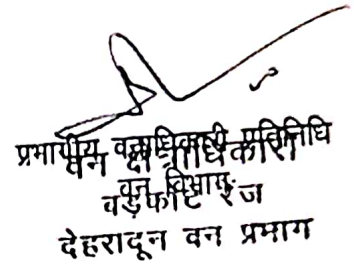 प्रभागीय वनाधिकारी प्रतिनिधि
वन क्षेत्राधिकारी
वन विभाग
बड़कोट रेंज
देहरादून वन प्रभाग